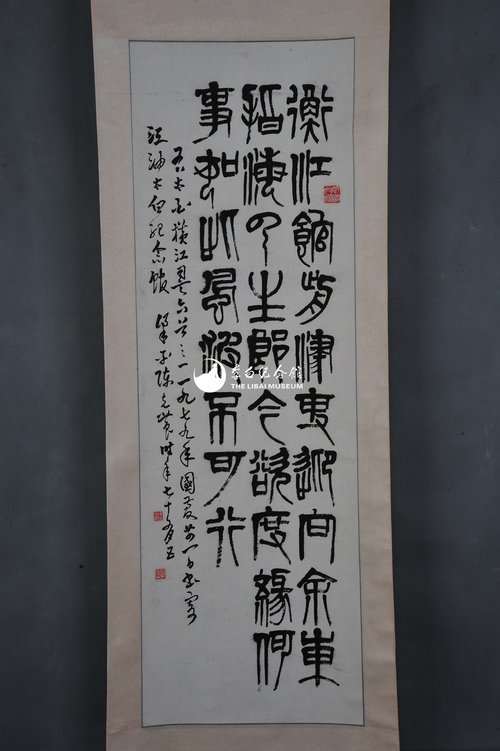 衡江館前津吏迎向余東
指海雲生郎今欲度緣何
事如此風波不可行
太白橫江詞六首之一一九七九年國慶一日書寄
江油太白紀念館 陳時年七十有五
李白纪念馆
THE LIBAI MUSEUM